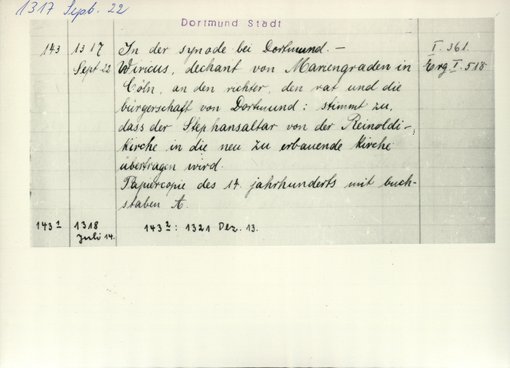 1317 Sept. 22
Dortmund Stadt
143 1317 In der synode bei Dortmund. – I. 361.
Sept. 22 Wiricus, dechant von Mariengraden in Erg I. 518
Cöln, an den richter, den rat und die
bürgerschaft von Dortmund: stimmt zu,
dass der Stephansaltar von der Reinoldi-
kirche in die neu zu erbauende kirche
übertragen wird.
Papiercopie des 14. jahrhunderts mit buch-
staben A.
143¹ 1318 143²: 1321 Dez. 13.
Juli 14.